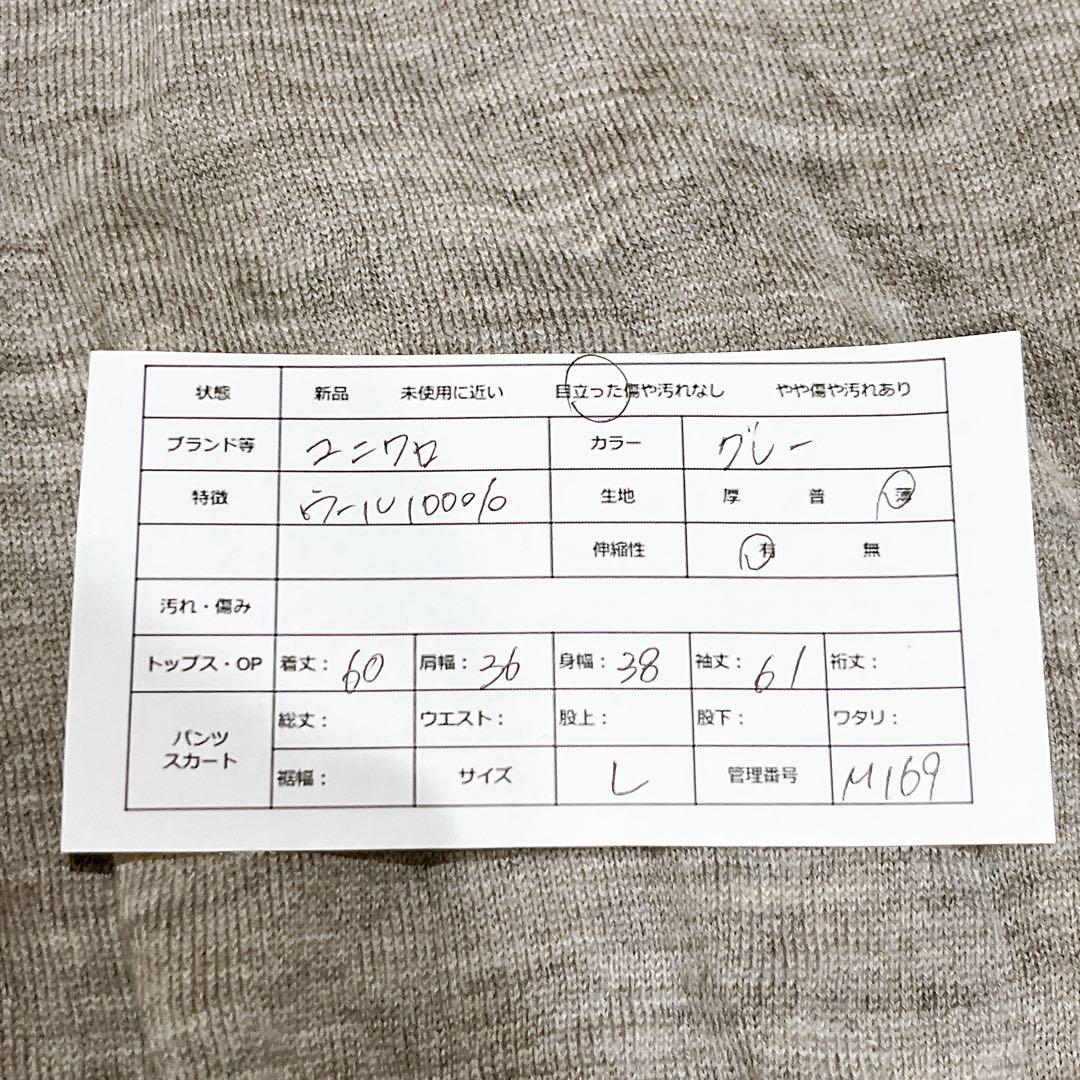 状態 新品 未使用に近い 目立った傷や汚れなし やや傷や汚れあり
ブランド等 ユニクロ カラー グレー
特徴 ウール100% 生地 厚 普 薄
伸縮性 有 無
汚れ・傷み
トップス・OP 着丈：60 肩幅：36 身幅：38 袖丈：61 裄丈：
パンツ スカート 総丈： ウエスト： 股上： 股下： ワタリ：
裾幅： サイズ L 管理番号 M169